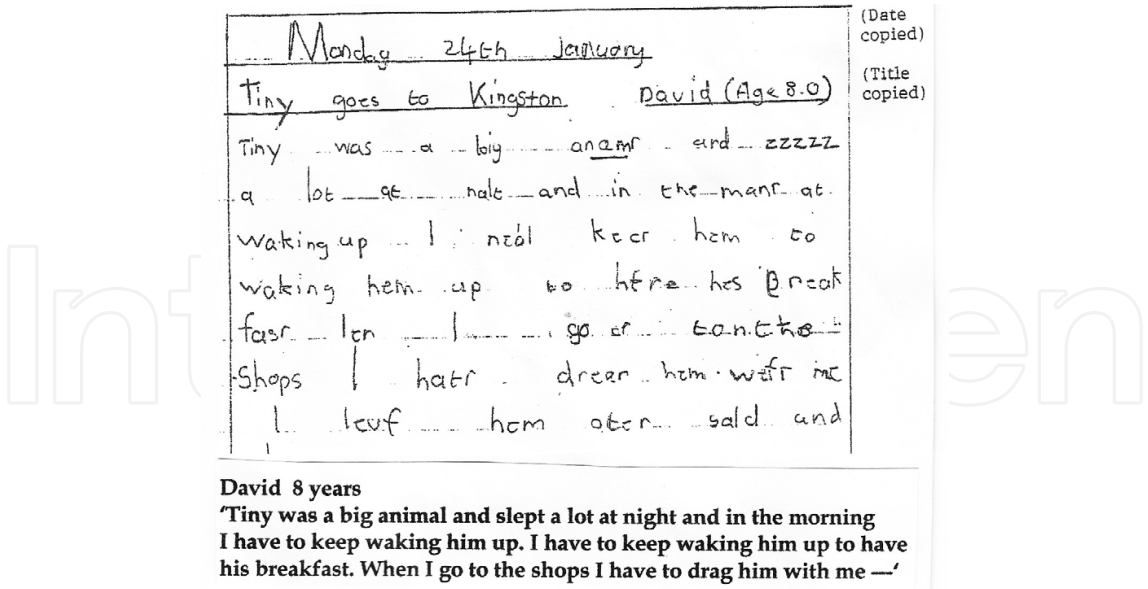 Monday 24th January
(Date copied)
Tiny goes to Kingston David (Age 8.0)
(Title copied)
Tiny was a biy anamr and zzzzz
a lot at nalt and in the manr at
waking up I keer hem to
waking hem up to hfre hes Break
fasr I go tonthe
Shops I hatr drear hem wifr me
I leuf hem oter sald and
David 8 years
‘Tiny was a big animal and slept a lot at night and in the morning
I have to keep waking him up. I have to keep waking him up to have
his breakfast. When I go to the shops I have to drag him with me —‘